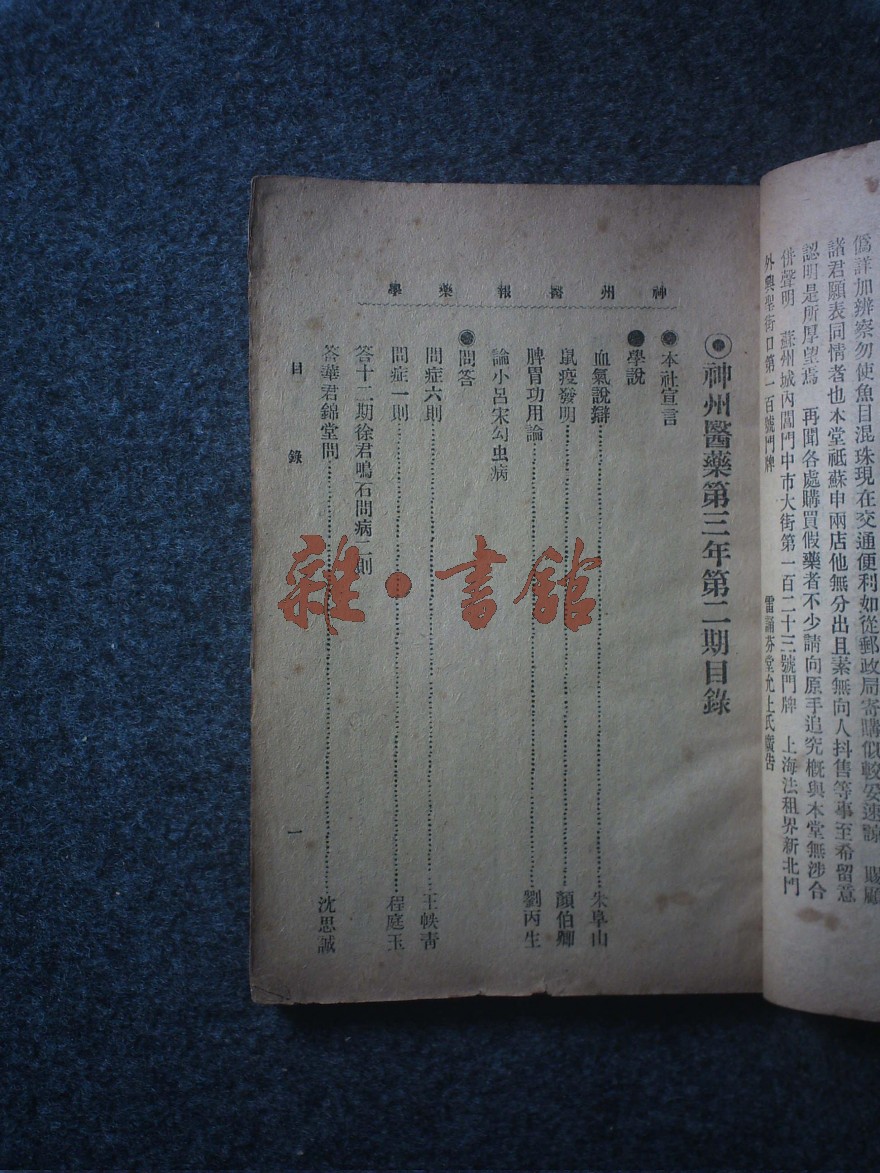 偽詳加辨察勿使魚目混珠現在交通便利如從郵政局寄購似較妥速諫 賜顧
諸君願表同情者也本堂祇蘇申兩店他無分出且素無向人抖售等事至希留意
認明是所厚望焉 再聞各處購買假藥者不少請向原手追究概與本堂無涉合
併聲明 蘇州城內閶門中市大街第一百二十三號門牌 上海法租界新北門
外興聖街口第一百號門牌 雷誦芬堂允上氏廣告
神州醫報藥學
神州醫藥第三年第二期目錄
本社宣言
學說
血氣說辯 朱阜山
鼠疫發明 顏伯卿
脾胃功用論 劉丙生
論小呂宋勾虫病
問答
問症六則 王帙青
問症一則 程庭玉
答十二期徐君鳴石問病二則
答華君錦堂問 沈思誠
目錄 一
雜·書館